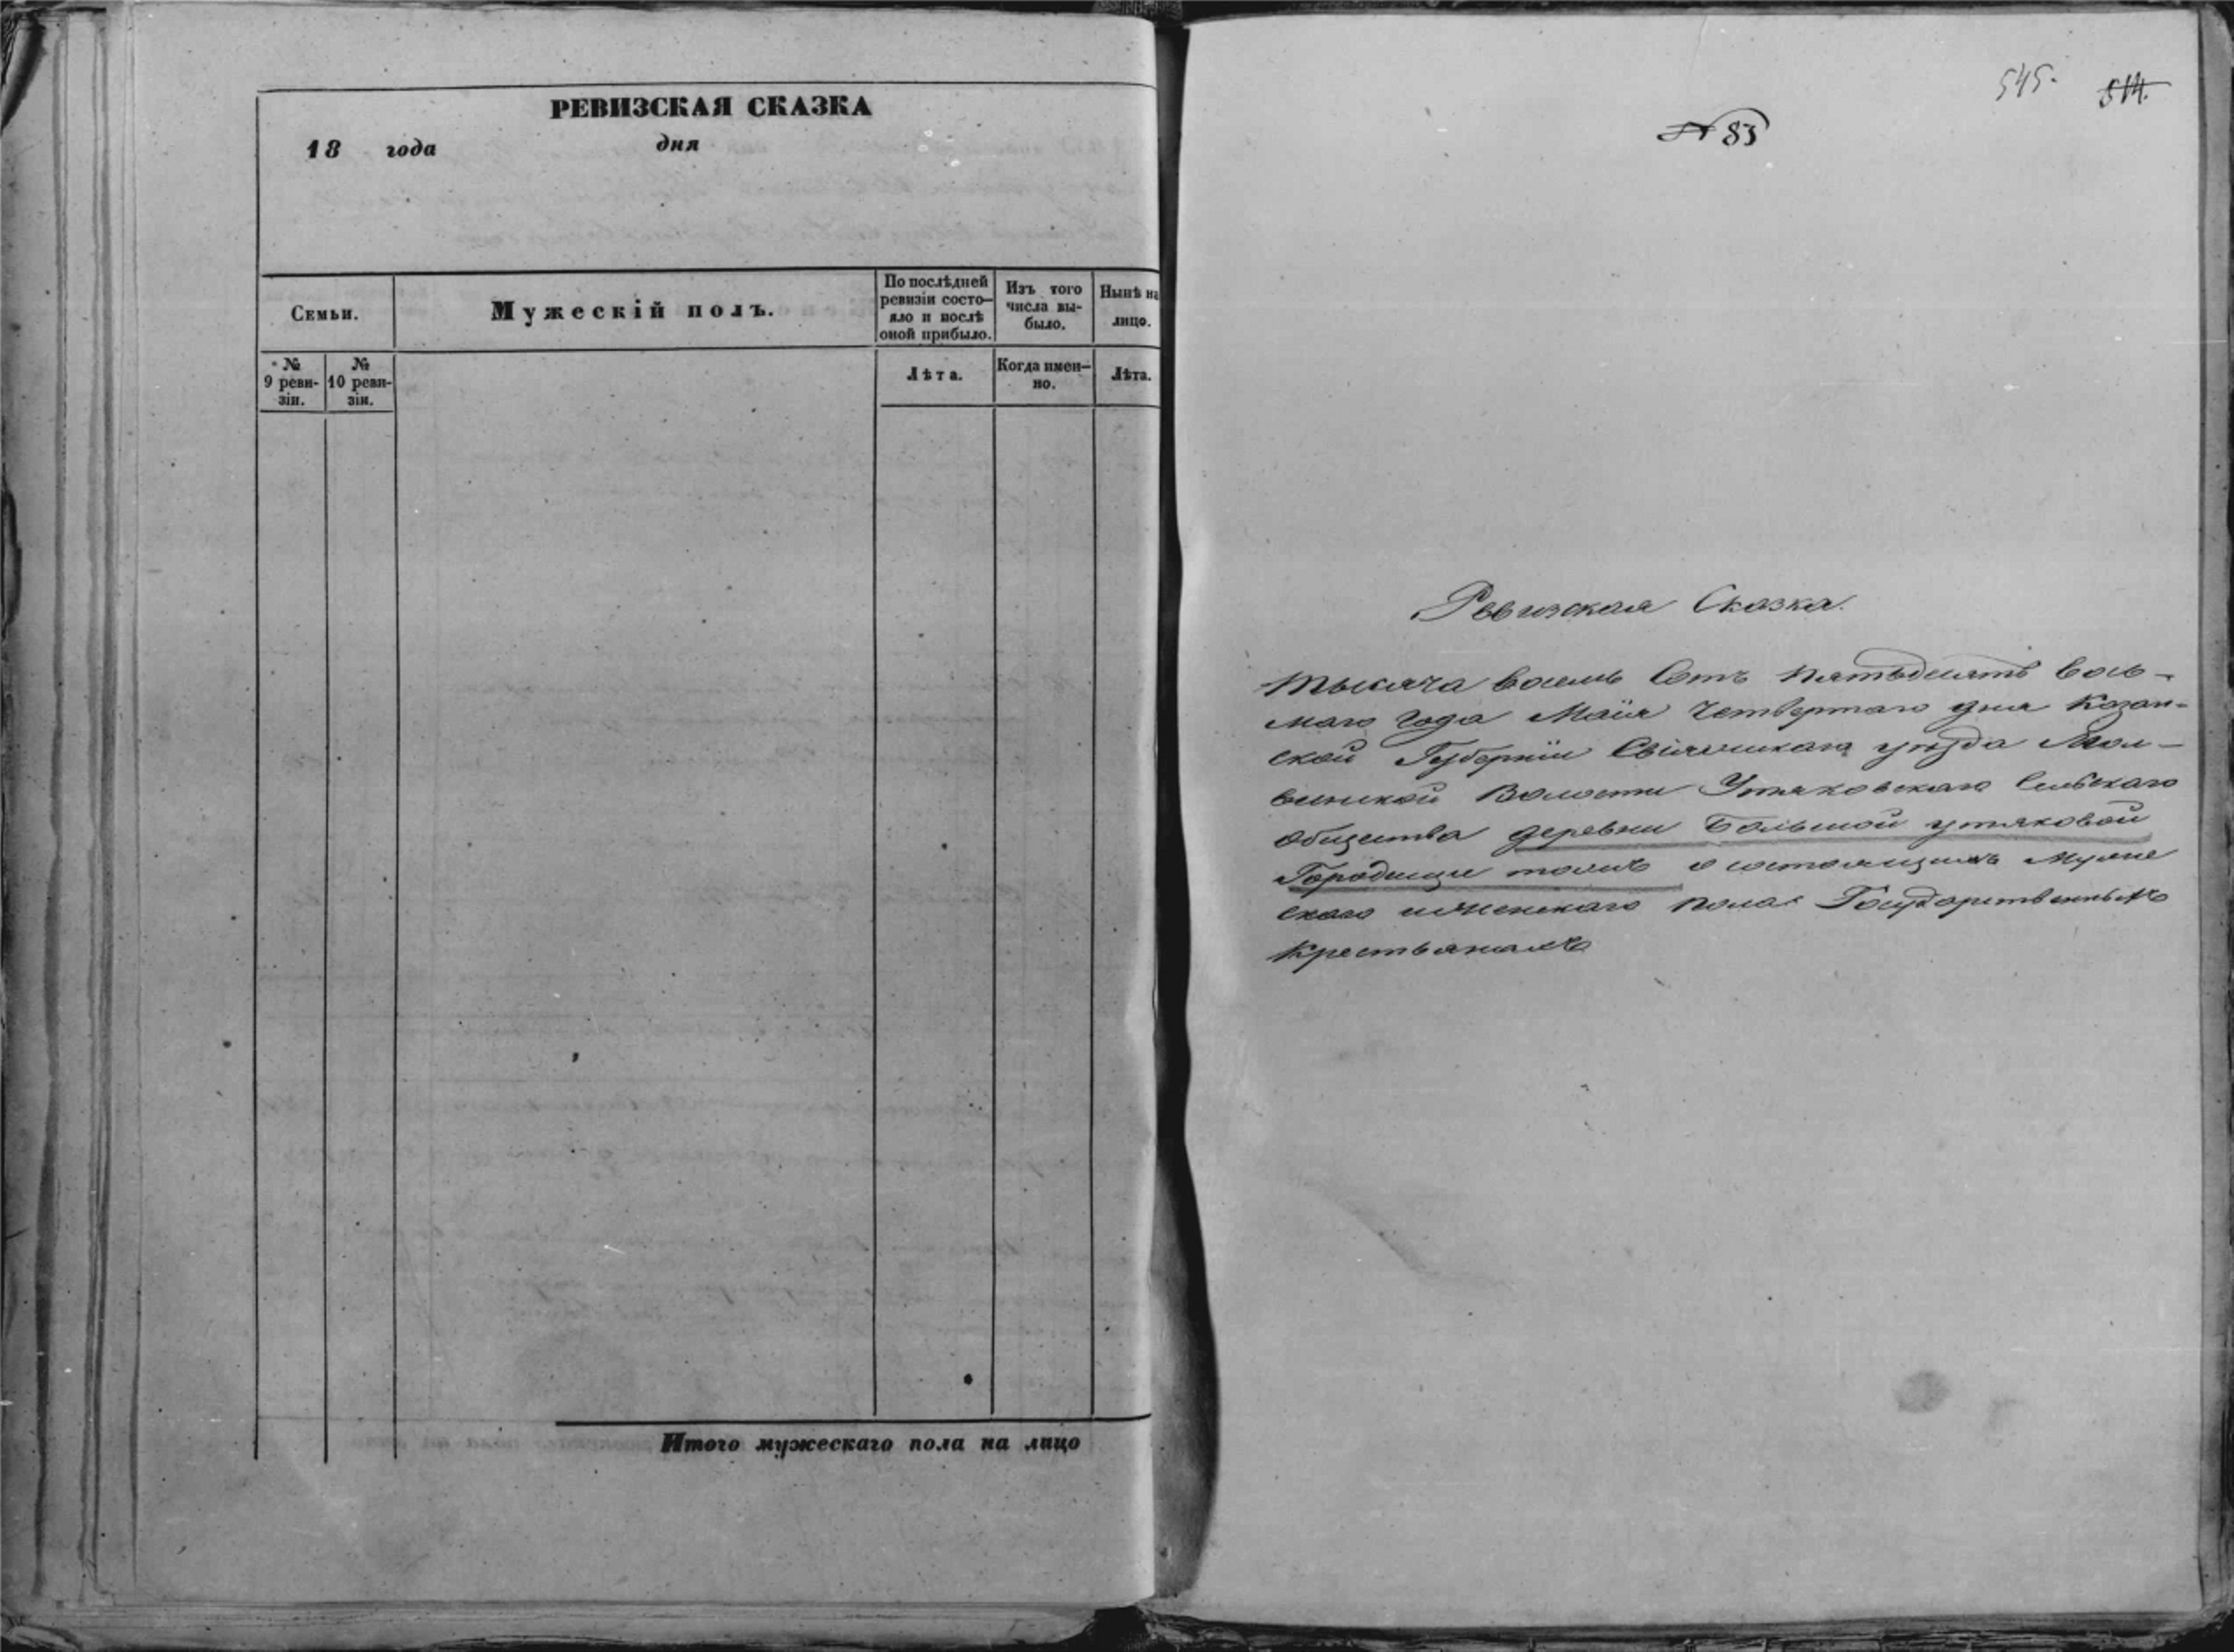 РЕВИЗСКАЯ СКАЗКА
18 года дня
Семьи.
Мужескій полъ.
По послѣдней
ревизіи состо-
яло и послѣ
оной прибыло.
Изъ того
числа вы-
было.
Нынѣ на
лицо.
№
9 реви-
зіи.
№
10 реви-
зіи.
Лѣта.
Когда имен-
но.
Лѣта.
Итого мужескаго пола на лицо
545. 514.
№ 83
Ревизская Сказка.
Тысяча восемь Сотъ пятьдесятъ вось-
маго года Маія четвертаго дня Казан-
ской Губерніи Свіяжскаго уѣзда Мол-
винской Волости Утяковскаго Сельскаго
общества деревни Большой утяковой
Городище тожъ о состоящихъ Муже
скаго иженскаго пола Государственныхъ
Крестьянахъ